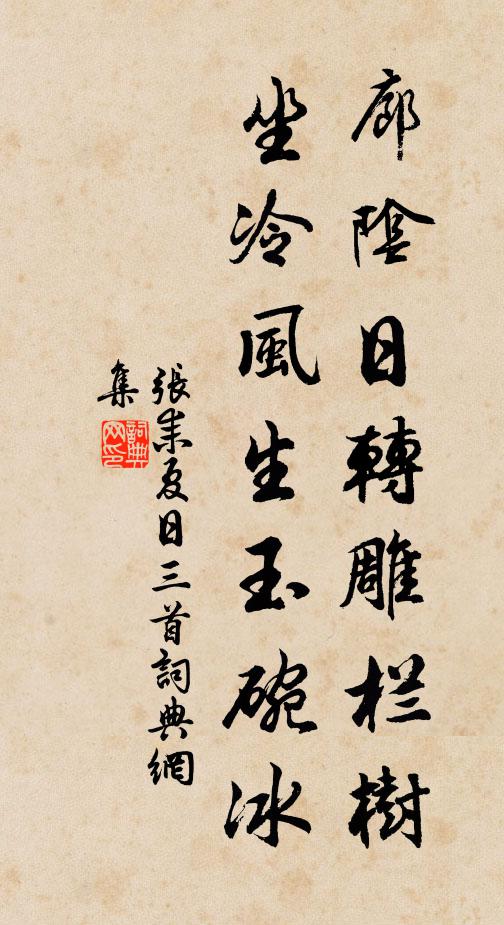 廊陰日轉雕栏樹
坐冷風生玉碗冰
張耒夏日三首詞典網
集
詞典
网印